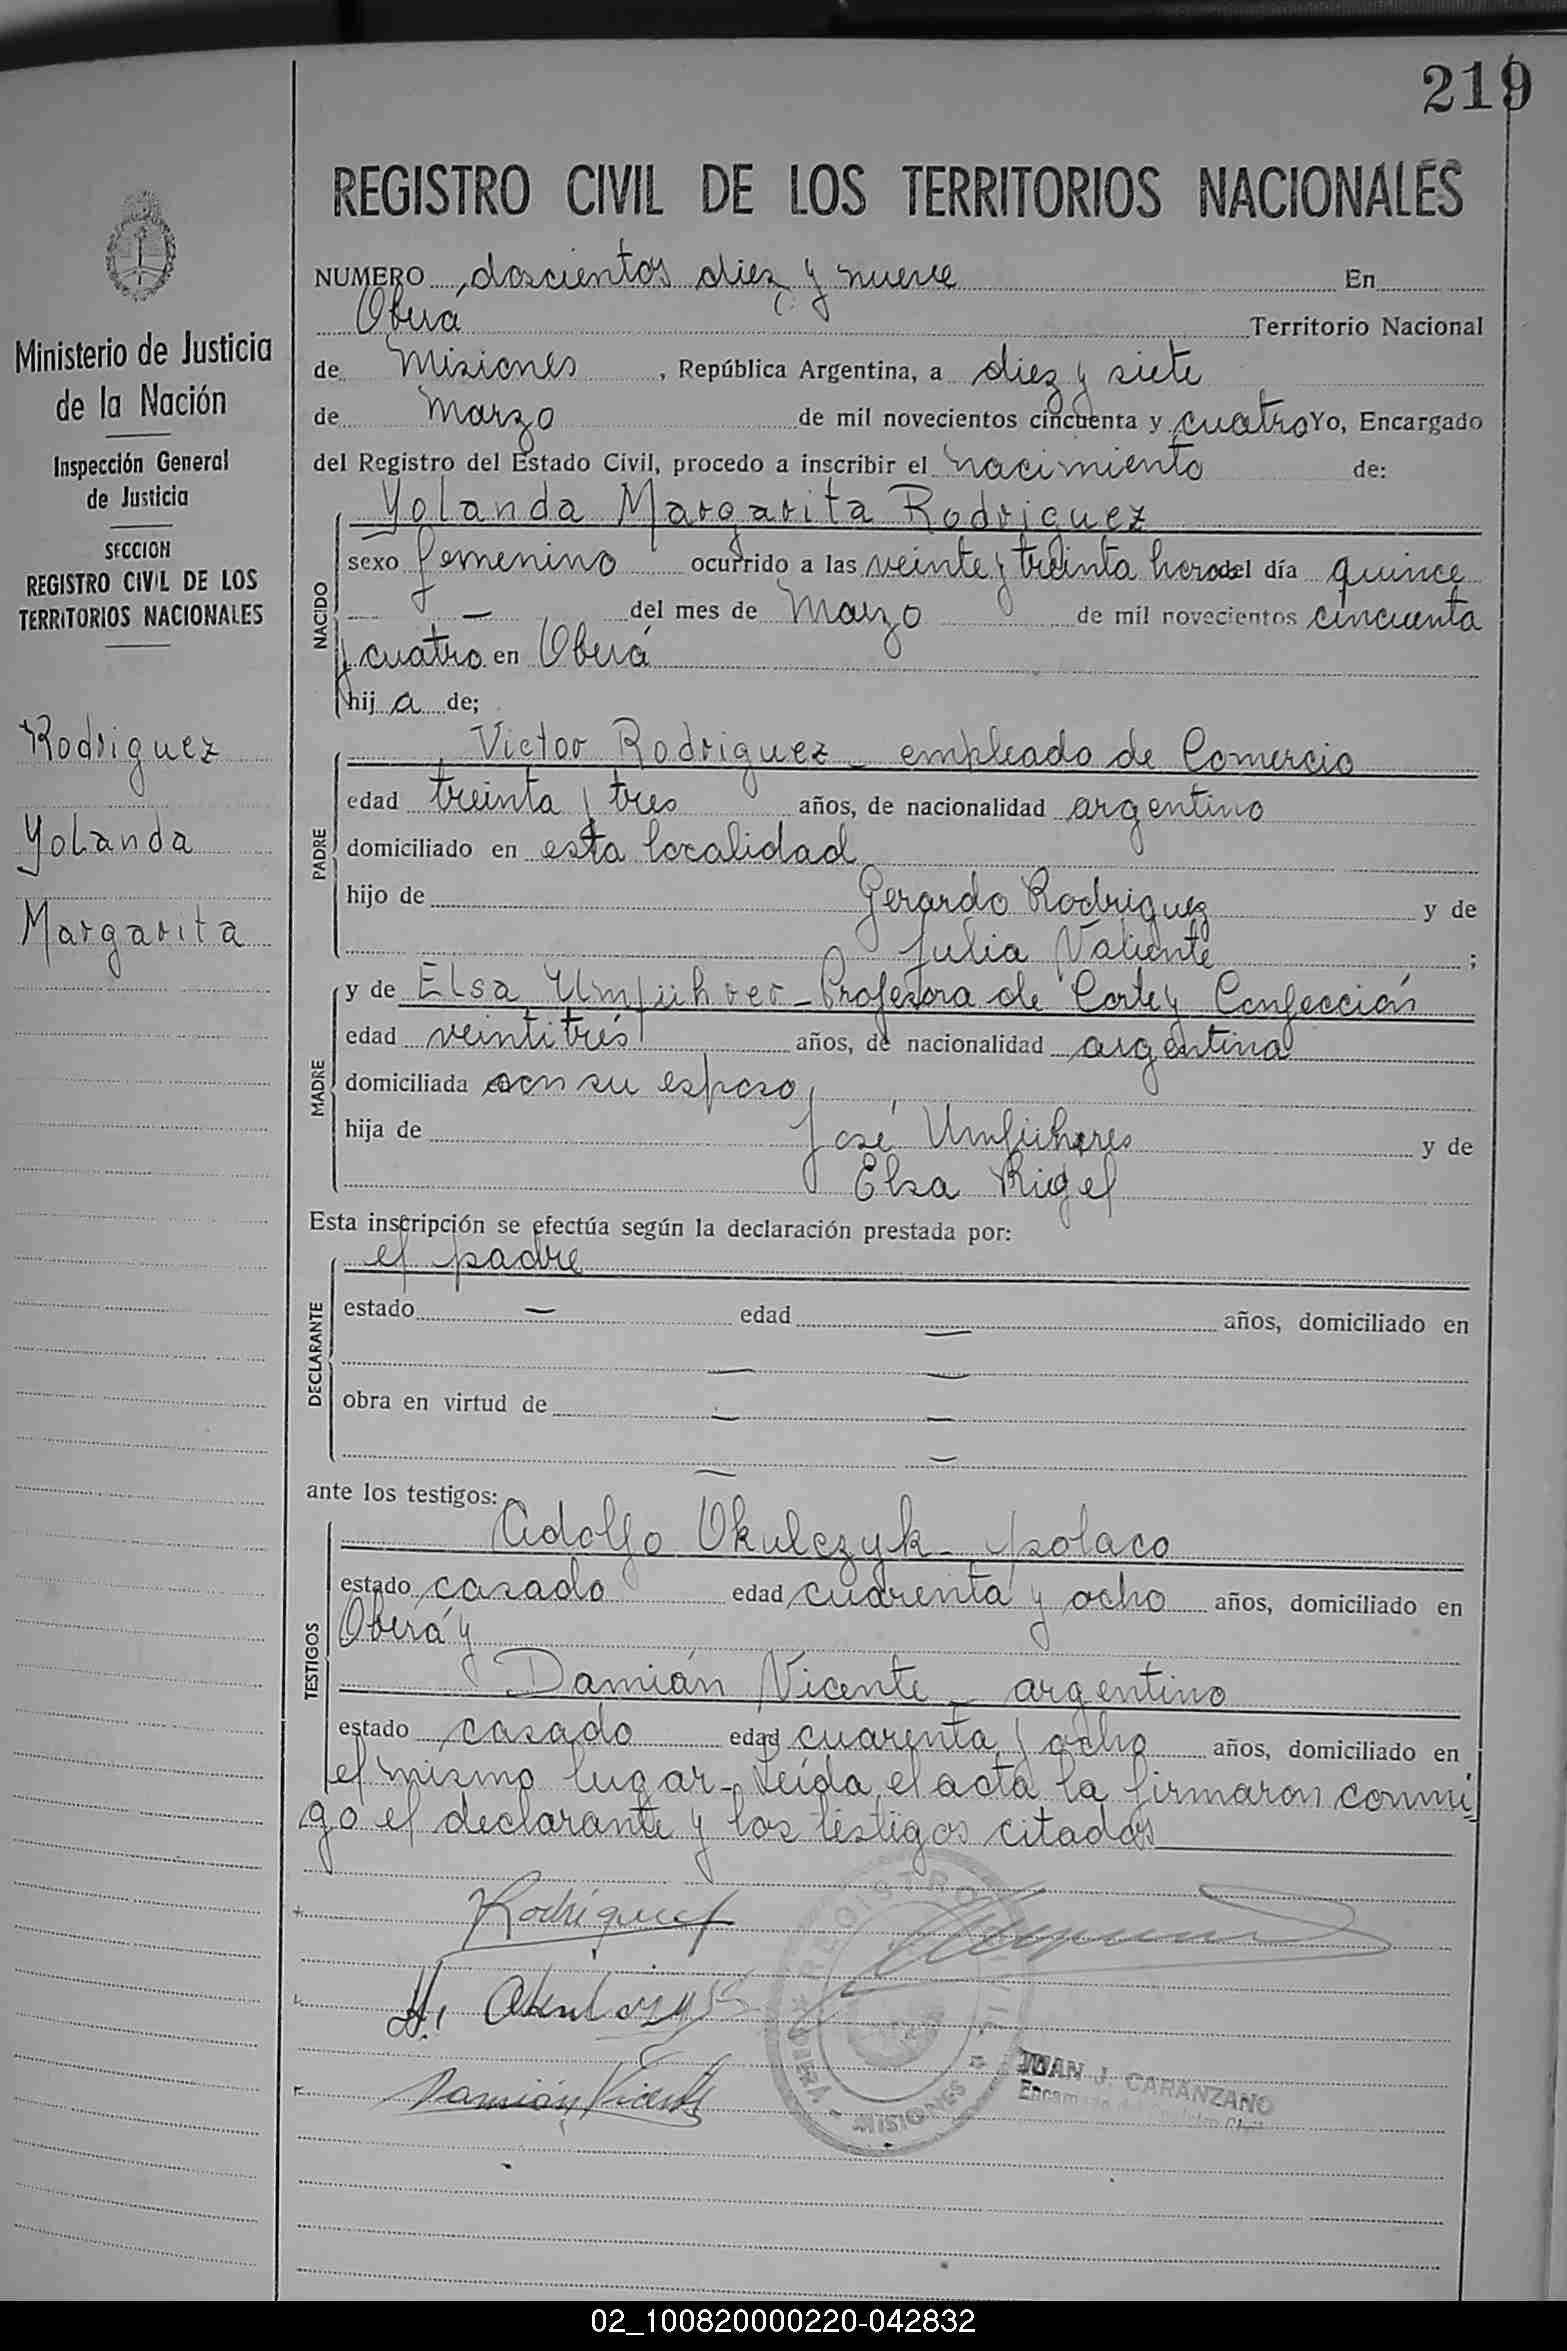 219
REGISTRO CIVIL DE LOS TERRITORIOS NACIONALES
Ministerio de Justicia
de la Nación
Inspección General
de Justicia
SECCION
REGISTRO CIVIL DE LOS
TERRITORIOS NACIONALES
Rodriguez
Yolanda
Margarita
NUMERO doscientos diez y nueve En
Oberá Territorio Nacional
de Misiones, República Argentina, a diez y siete
de Marzo de mil novecientos cincuenta y cuatro Yo, Encargado
del Registro del Estado Civil, procedo a inscribir el nacimiento de:
NACIDO
Yolanda Margarita Rodriguez
sexo femenino ocurrido a las veinte y treinta horas del día quince
— del mes de Marzo de mil novecientos cincuenta
y cuatro en Oberá
hija de;
PADRE
Victor Rodriguez - empleado de Comercio
edad treinta y tres años, de nacionalidad argentino
domiciliado en esta localidad
hijo de Gerardo Rodriguez y de
Julia Valiente ;
MADRE
y de Elsa - Profesora de Corte y Confección
edad veintitrés años, de nacionalidad argentina
domiciliada con su esposo
hija de José y de
Elsa Rigel
Esta inscripción se efectúa según la declaración prestada por:
DECLARANTE
el padre
estado — edad — años, domiciliado en
— —
obra en virtud de — —
— —
ante los testigos:
TESTIGOS
Adolfo Okulczyk - polaco
estado casado edad cuarenta y ocho años, domiciliado en
Oberá y
Damián Vicente - argentino
estado casado edad cuarenta y ocho años, domiciliado en
el mismo lugar - Leída el acta la firmaron conmi-
go el declarante y los testigos citados
Rodriguez
Damián Vicente
REGISTRO CIVIL
OBERA - MISIONES
JUAN J. CARANZANO
Encargado del Registro Civil
02_100820000220-042832